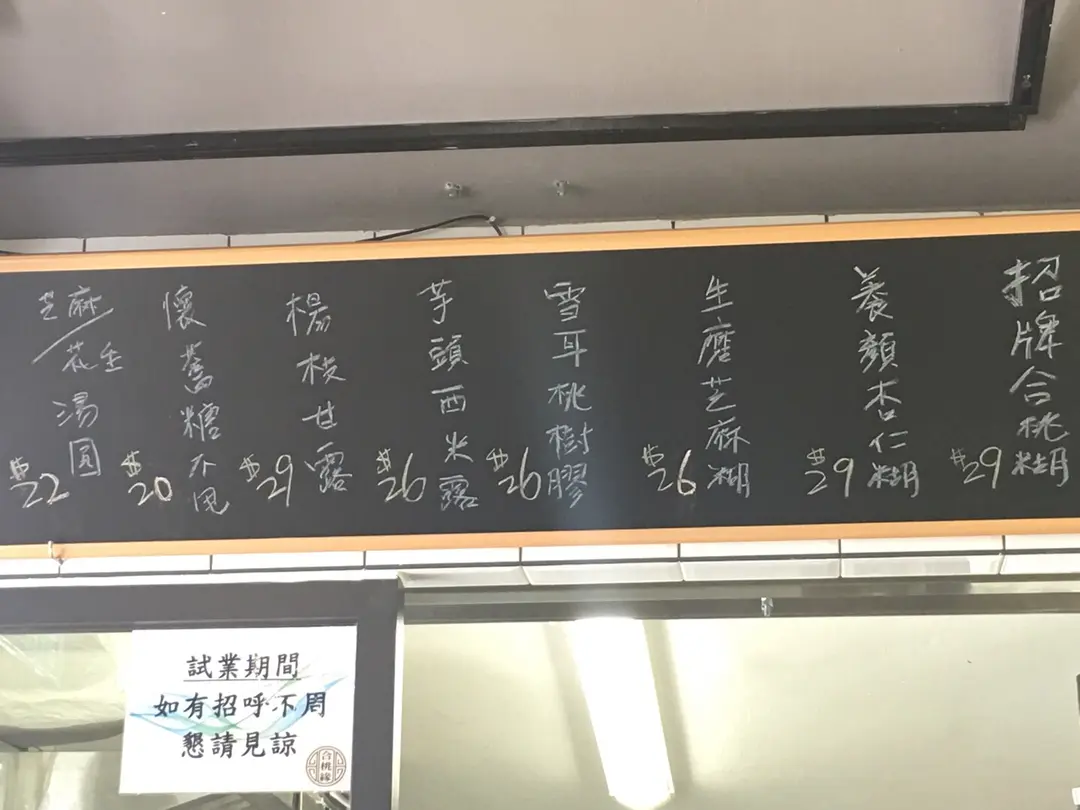 招牌合桃糊
$29
養顏杏仁糊
$29
生磨芝麻糊
$26
雪耳桃樹膠
$26
芋頭西米露
$26
楊枝甘露
$29
懷舊糖不甩
$20
芝麻/花生湯圓
$22
試業期間
如有招呼不周
懇請見諒
合桃緣